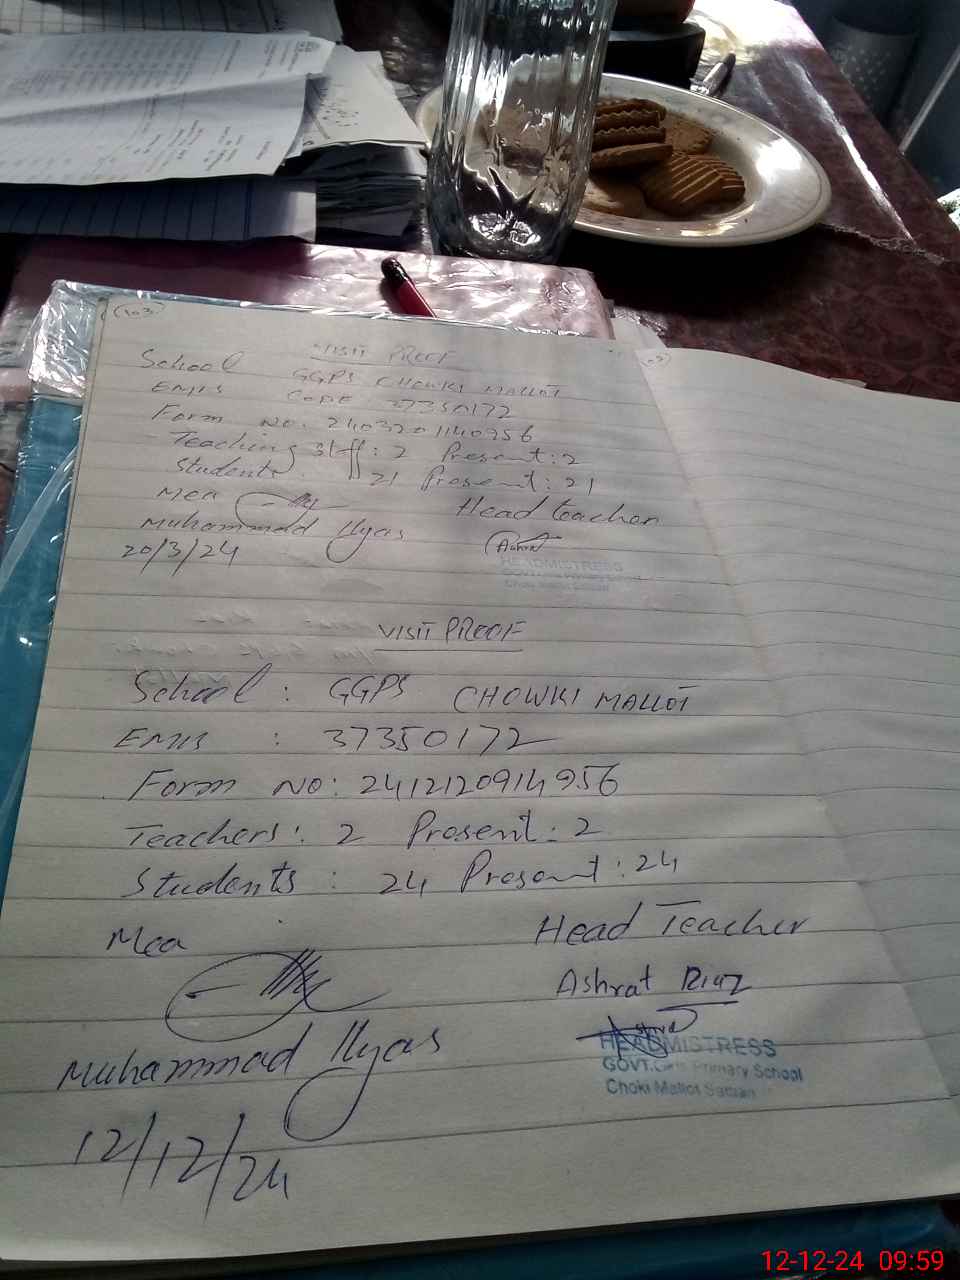 103
VISIT PROOF
School GGPS CHOWKI MALLOT
EMIS CODE 37350172
Form NO. 2403201140956
Teaching Staff: 2 Present: 2
Students: 21 Present: 21
Mea Head teacher
Muhammad Ilyas
20/3/24
HEADMISTRESS
VISIT PROOF
School : GGPS CHOWKI MALLOT
EMIS : 37350172
Form NO: 2412120914956
Teachers: 2 Present: 2
Students : 24 Present: 24
Mea Head Teacher
Ashrat Riaz
Muhammad Ilyas
HEADMISTRESS
GOVT. Girls Primary School
Choki Mallot Sadian
12/12/24
12-12-24 09:59